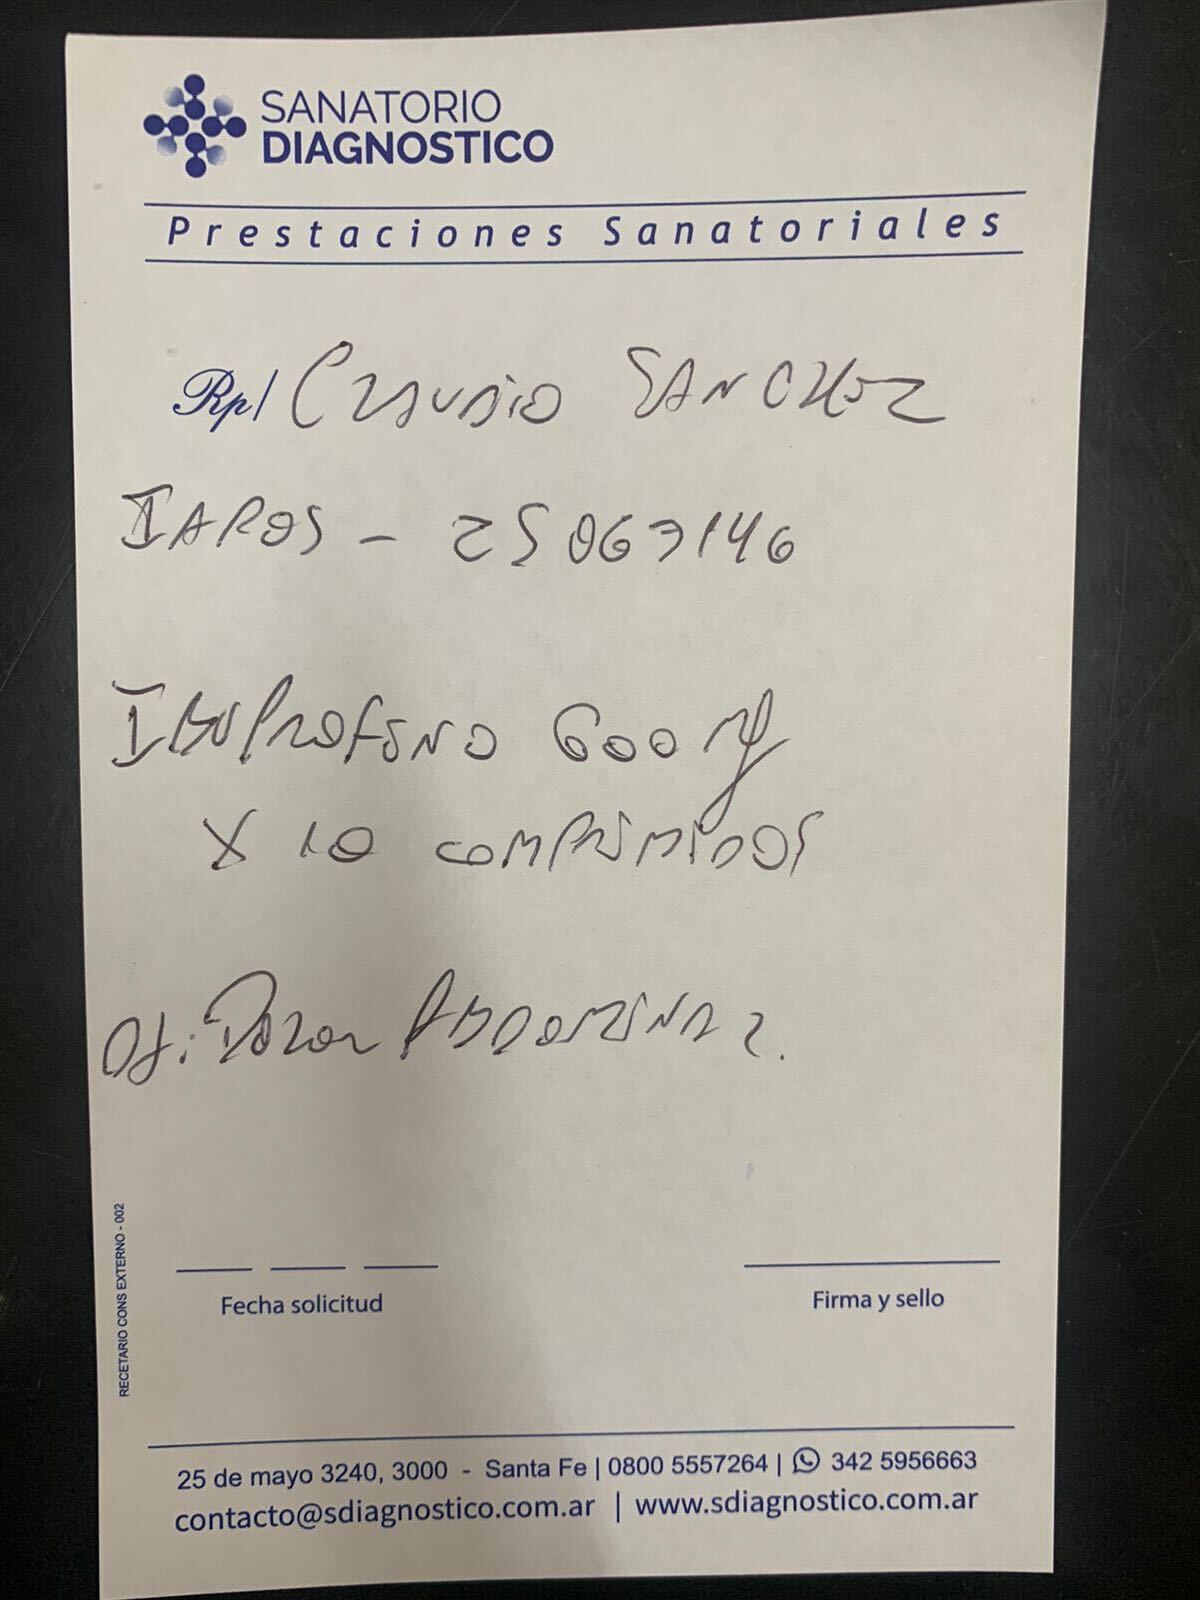 SANATORIO
DIAGNOSTICO
Prestaciones Sanatoriales
Rp/ CLAUDIO SANCHEZ
IAPOS - 25063146
IBUPROFENO 600 mg
X 10 COMPRIMIDOS
DX: DOLOR ABDOMINAL.
RECETARIO CONS EXTERNO - 002
Fecha solicitud
Firma y sello
25 de mayo 3240, 3000 - Santa Fe | 0800 5557264 | 342 5956663
contacto@sdiagnostico.com.ar | www.sdiagnostico.com.ar